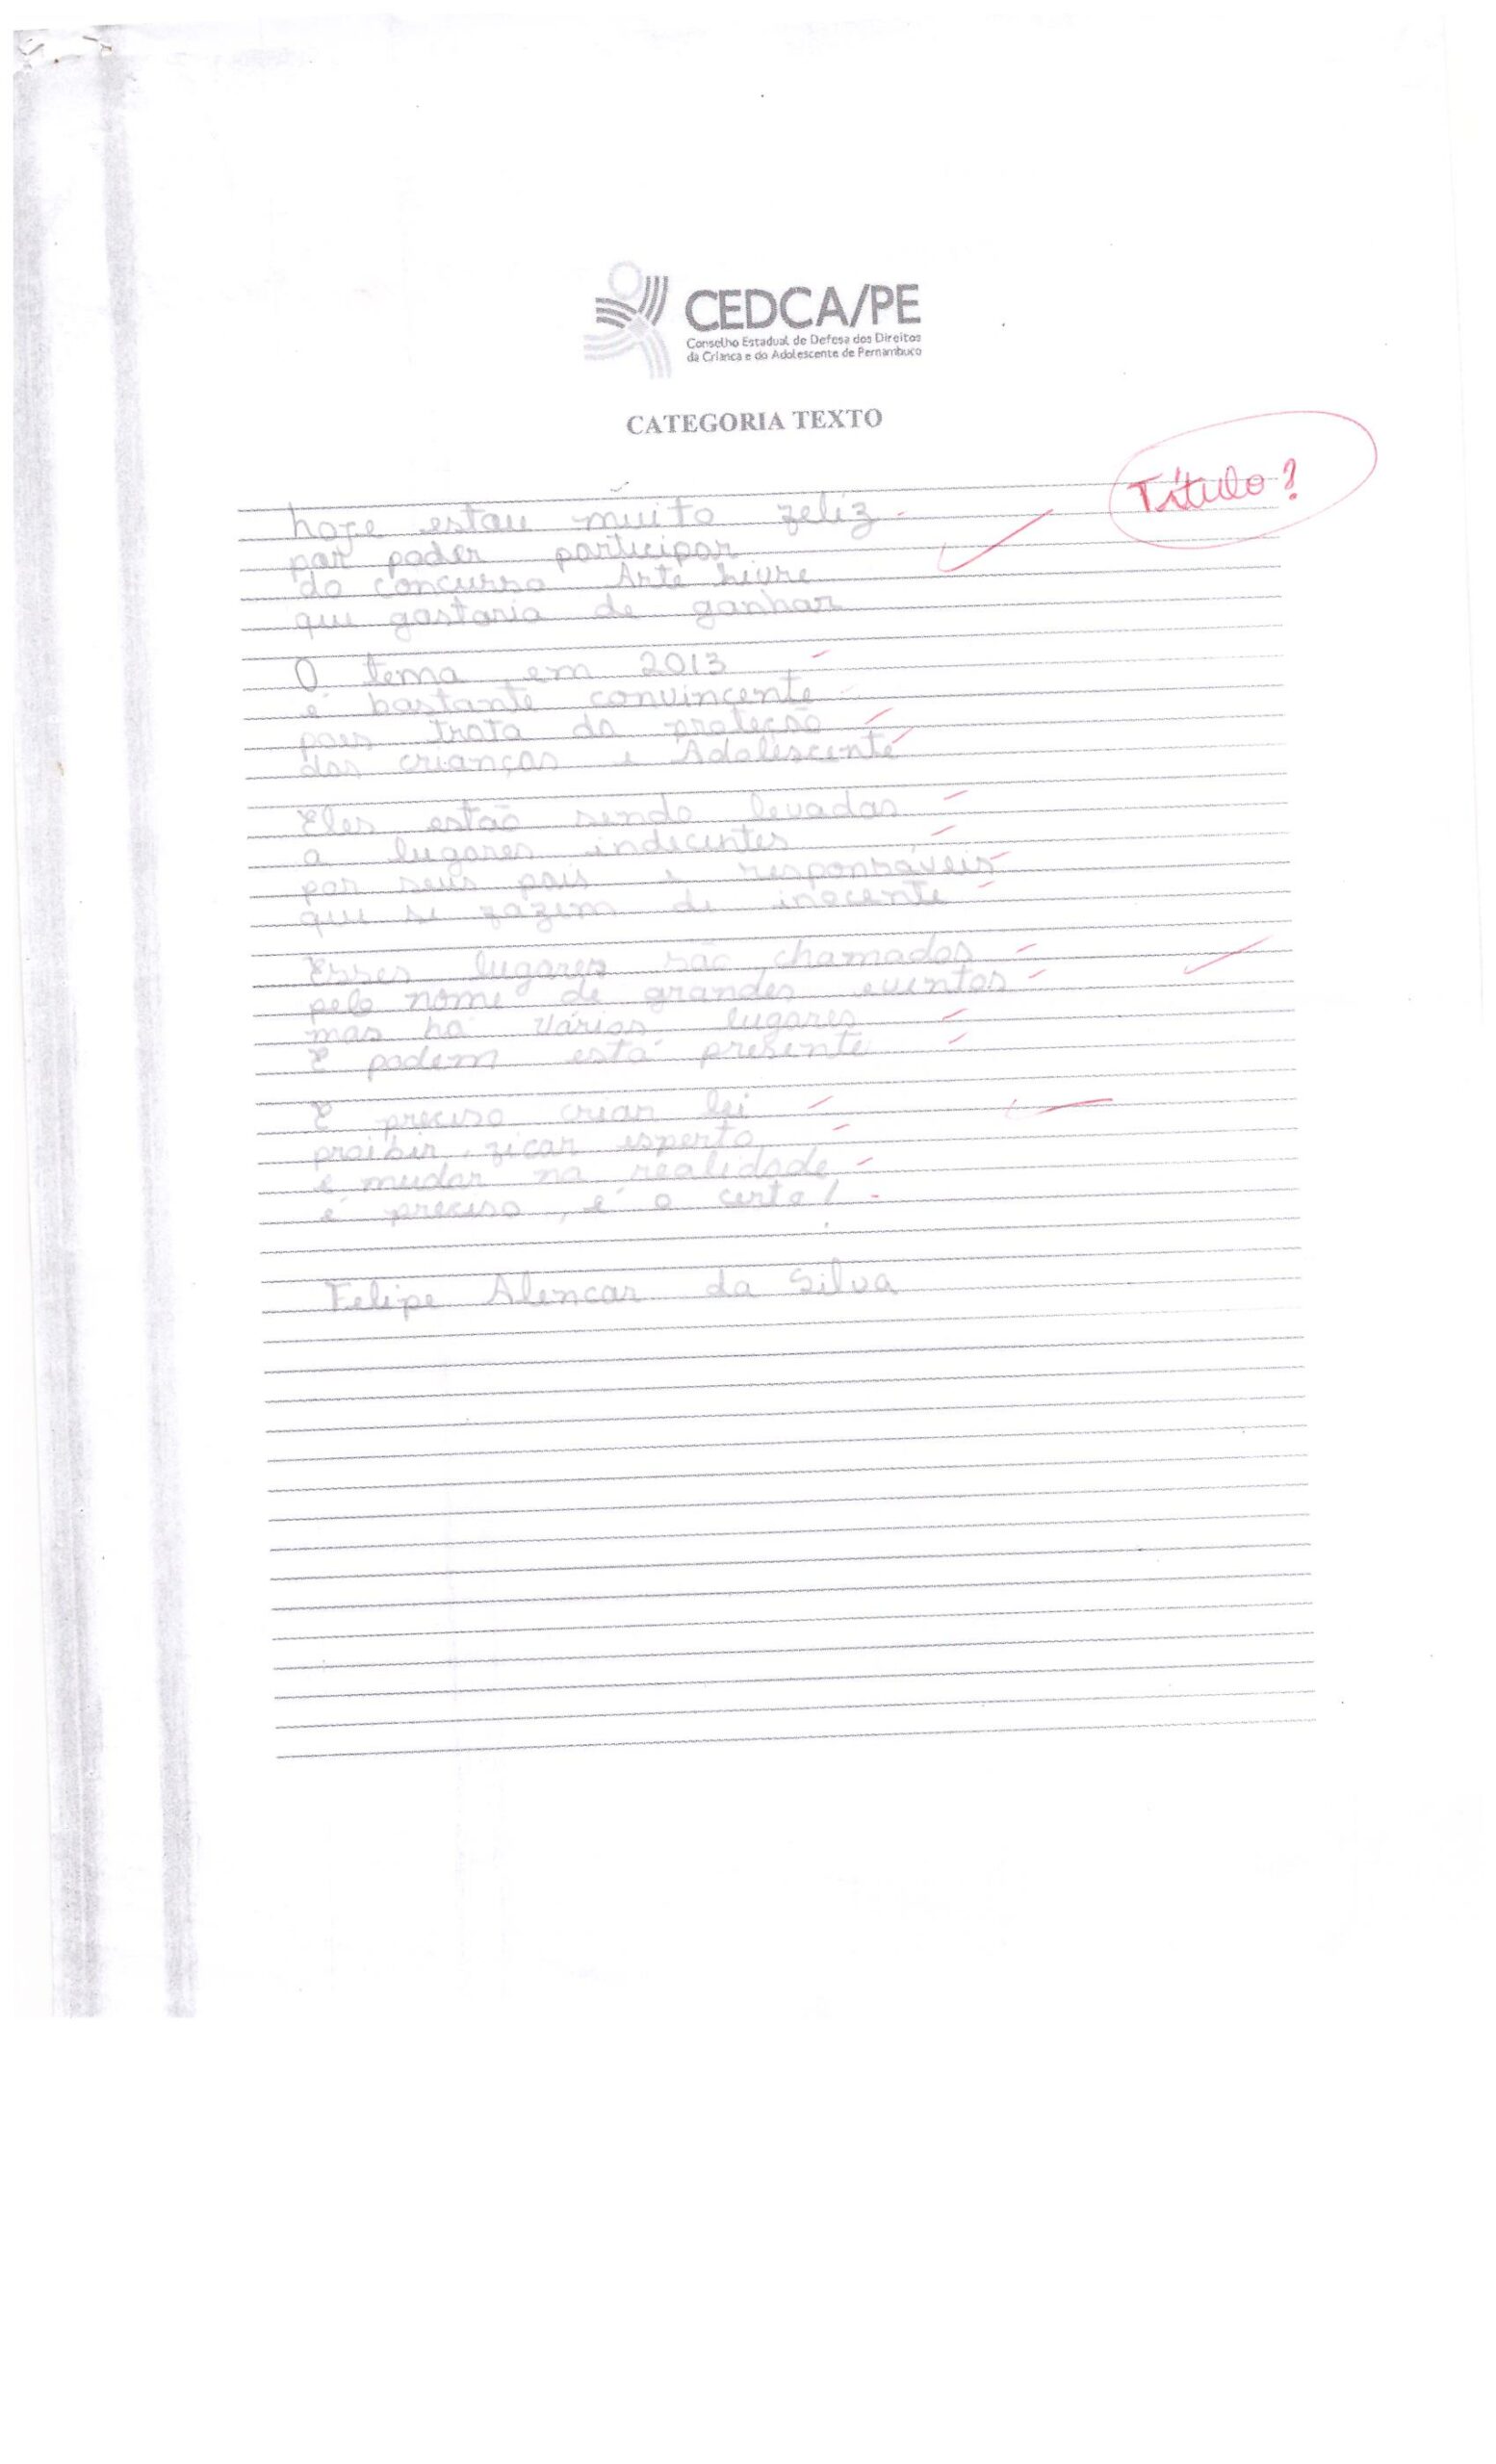 CEDCA/PE
Conselho Estadual de Defesa dos Direitos
da Criança e do Adolescente de Pernambuco
CATEGORIA TEXTO
Título?
hoje estou muito feliz
por poder participar
do concurso Arte Livre
que gostaria de ganhar
O tema em 2013
é bastante convincente
pois trata da proteção
das crianças e Adolescente
Eles estão sendo levadas
a lugares indecentes
por seus pais e responsáveis
que se fazem de inocente
Esses lugares são chamados
pelo nome de grandes eventos
mas há vários lugares
E podem está presente
É preciso criar lei
proibir, ficar esperto
e mudar na realidade
é preciso, é o certo!
Felipe Alencar da Silva